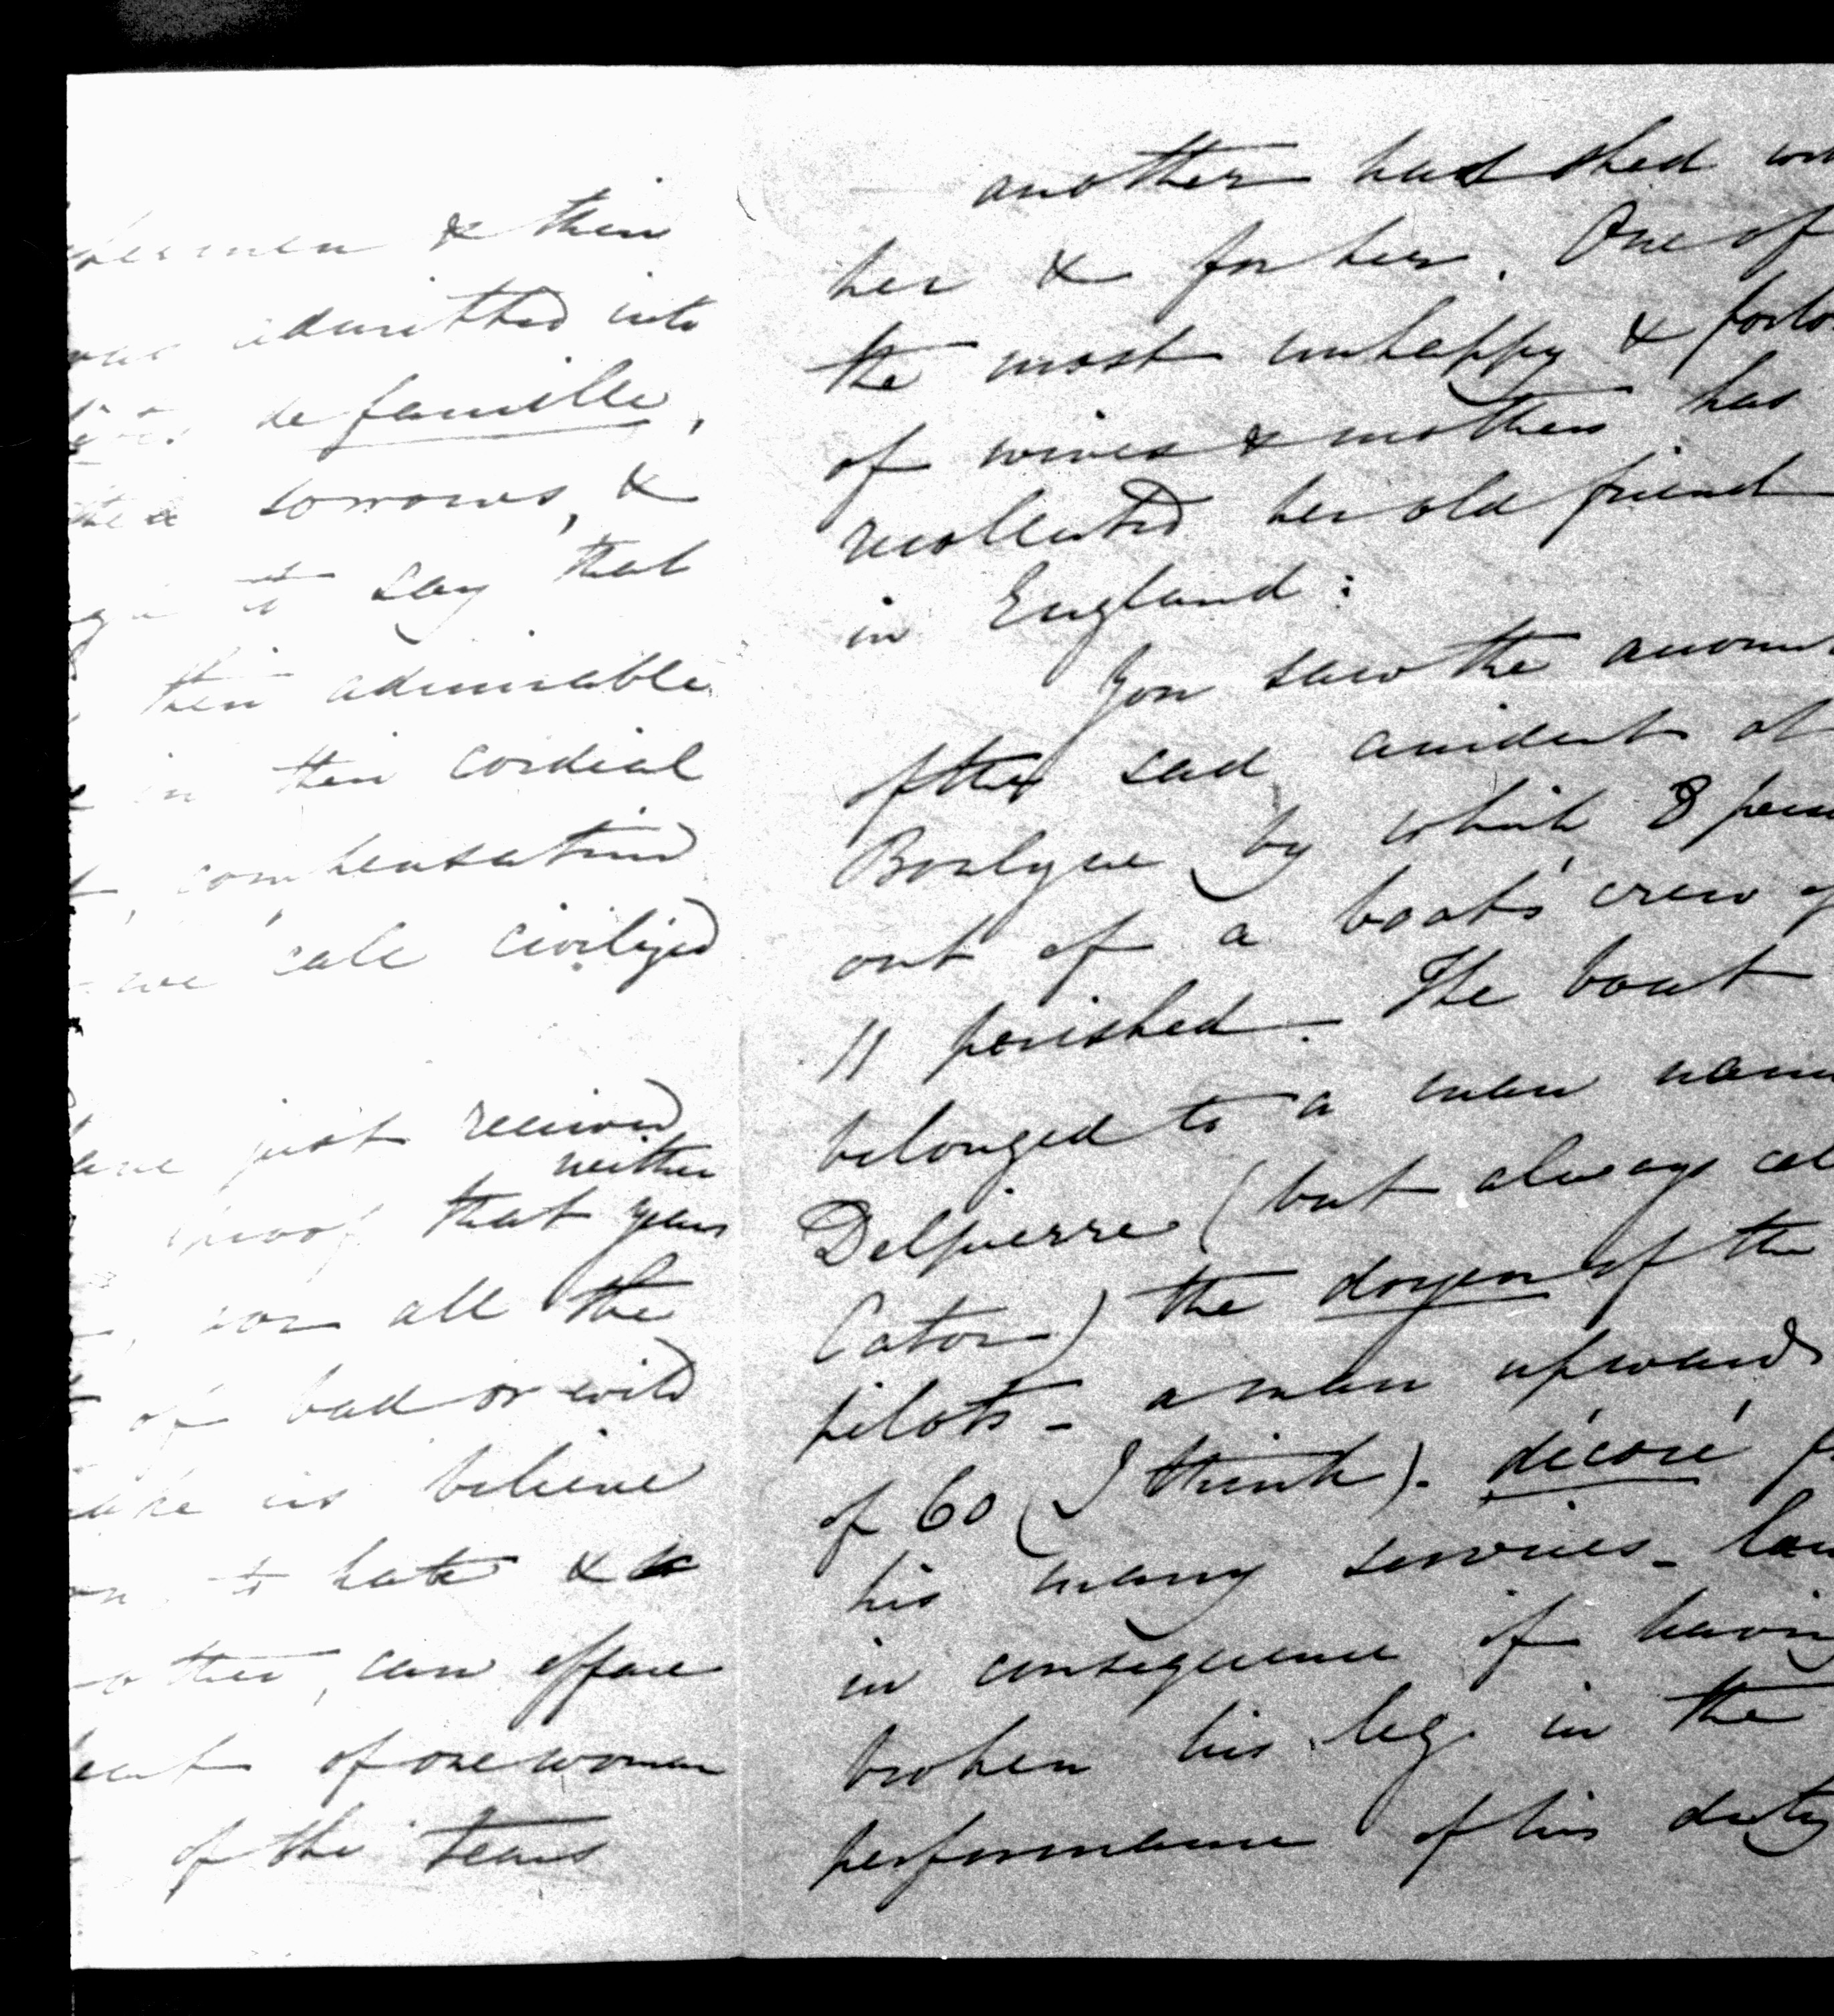 & their
admitted into
de famille,
sorrows, &
to say that
their admirable
in their cordial
compensation
we call civilized
just received
neither
proof that years
nor all the
of bad or evil
us believe
to hate & to
other, can efface
of one woman
of the tears
another had shed
her & for her. One of
the most unhappy &
of wives & mothers has
recollected her old friend
in England:
You saw the
of the sad accident at
Boulgne by which 8
out of a boats' crew
11 perished. The boat
belonged to a man
Delpierre (but always
Caton) the doyen of the
pilots - a man upwards
of 60 (I think). décoré
his many services -
in consequence of having
broken his leg in the
performance of his duty